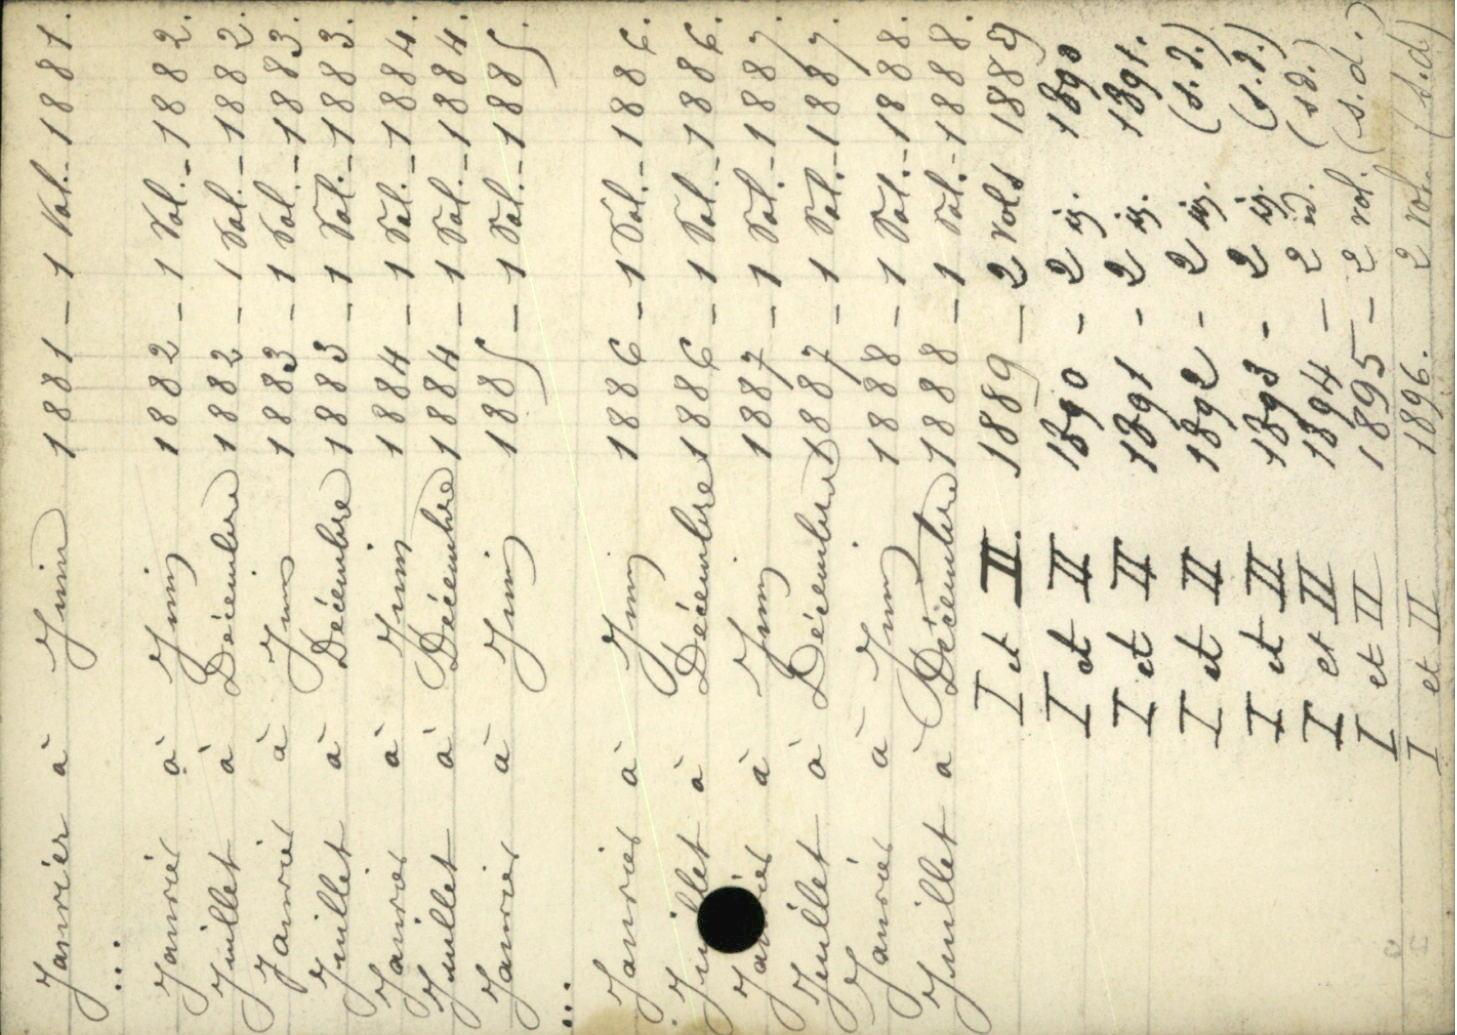 Janvier à Juin 1881 - 1 Vol. - 1881.
...
Janvier à Juin 1882 - 1 Vol. - 1882.
Juillet à Décembre 1882 - 1 Vol. - 1882.
Janvier à Juin 1883 - 1 Vol. - 1883.
Juillet à Décembre 1883 - 1 Vol. - 1883.
Janvier à Juin 1884 - 1 Vol. - 1884.
Juillet à Décembre 1884 - 1 Vol. - 1884.
Janvier à Juin 1885 - 1 Vol. - 1885.
...
Janvier à Juin 1886 - 1 Vol. - 1886.
Juillet à Décembre 1886 - 1 Vol. - 1886.
Janvier à Juin 1887 - 1 Vol. - 1887.
Juillet à Décembre 1887 - 1 Vol. - 1887.
Janvier à Juin 1888 - 1 Vol. - 1888.
Juillet à Décembre 1888 - 1 Vol. - 1888.
I et II. 1889 - 2 vols 1889
I et II 1890 - 2 id. 1890
I et II 1891 - 2 id. 1891.
I et II 1892 - 2 id. (s.d.)
I et II 1893 - 2 id. (s.d.)
I et II 1894 - 2 id. (sd.)
I et II 1895 - 2 vol. (s.d.)
I et II 1896. 2 vol. (s.d)